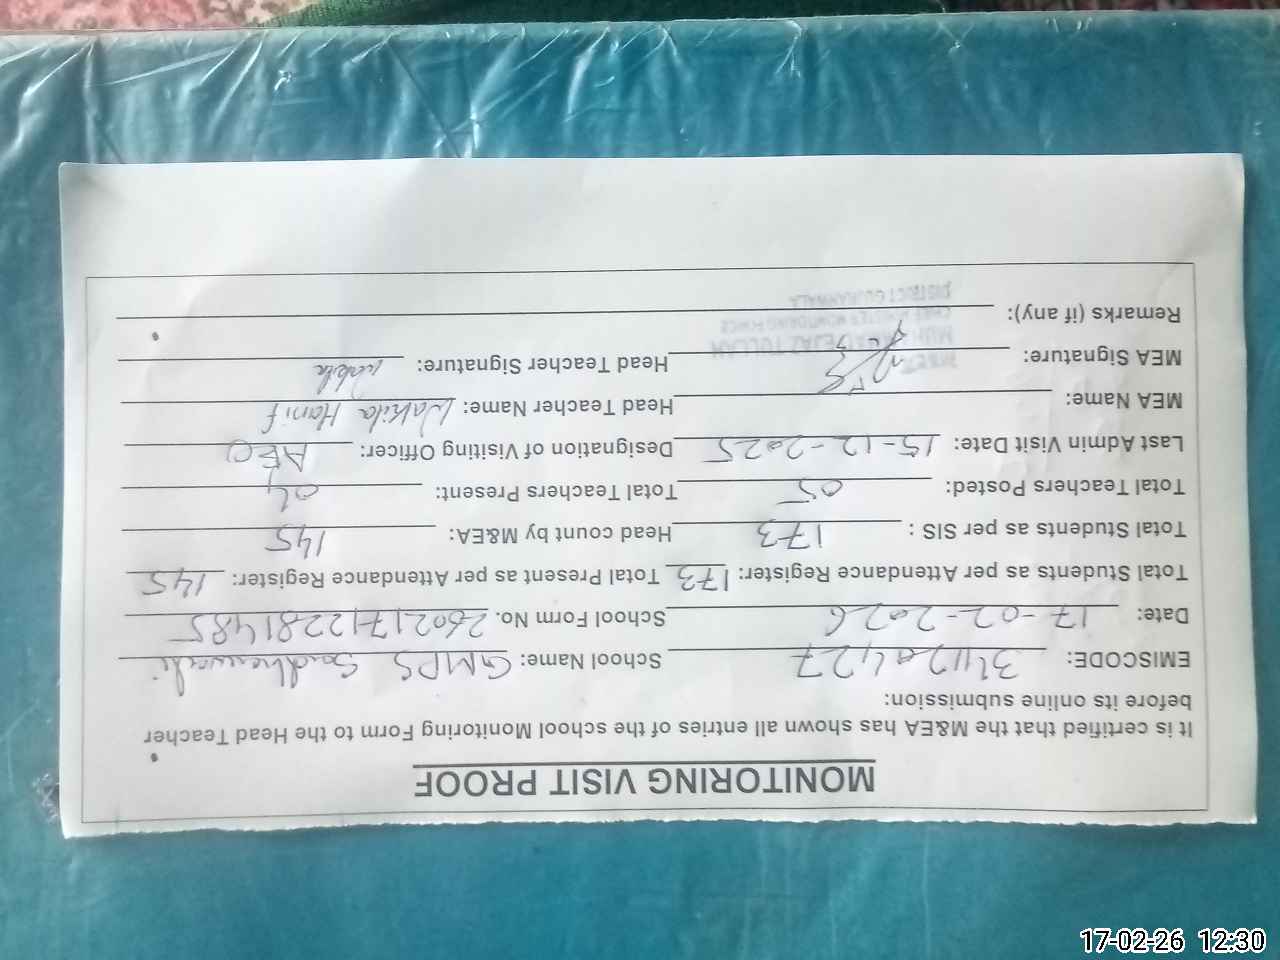 MONITORING VISIT PROOF
It is certified that the M&EA has shown all entries of the school Monitoring Form to the Head Teacher
before its online submission:
EMISCODE: 34120427 School Name: GMPS
Date: 17-02-2026 School Form No. 26021712281485
Total Students as per Attendance Register: 173 Total Present as per Attendance Register: 145
Total Students as per SIS : 173 Head count by M&EA: 145
Total Teachers Posted: 05 Total Teachers Present: 04
Last Admin Visit Date: 15-12-2025 Designation of Visiting Officer: AEO
MEA Name: Head Teacher Name: Wakila Hanif
MEA Signature: Head Teacher Signature: Wakila
Remarks (if any):
DISTRICT GUJRANWALA
17-02-26 12:30